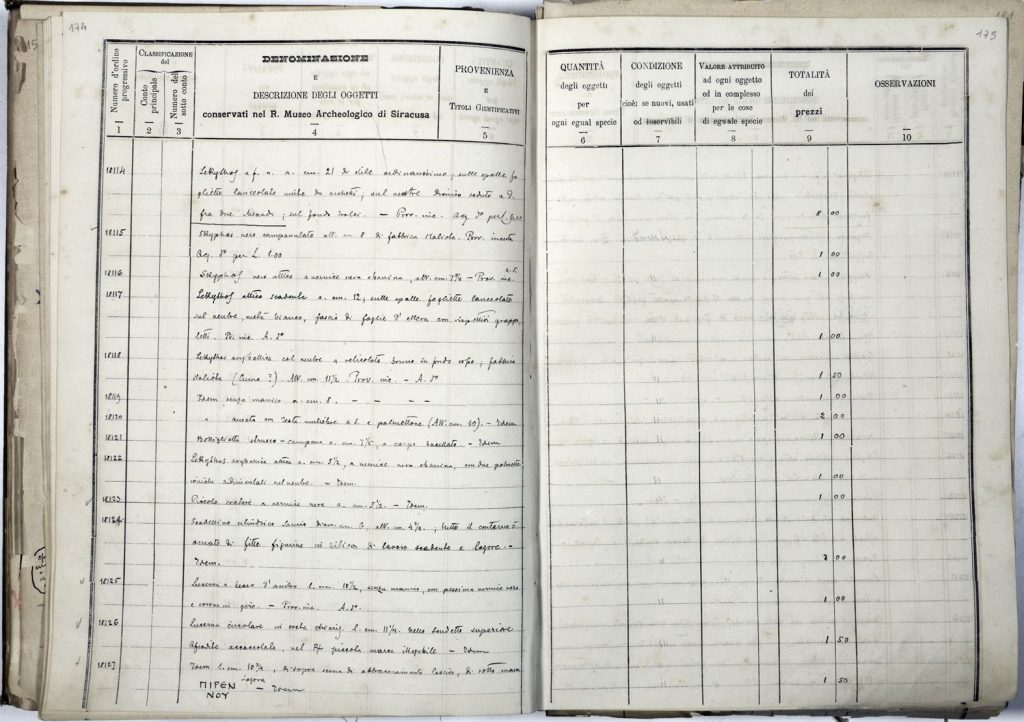 174
Numero d'ordine progressivo
CLASSIFICAZIONE del
Conto principale
Numero del sotto conto
DENOMINAZIONE
E
DESCRIZIONE DEGLI OGGETTI
conservati nel R. Museo Archeologico di Siracusa
PROVENIENZA
E
TITOLI GIUSTIFICATIVI
1 2 3 4 5
18114 Lekythos a f. n. a. cm. 21 di stile ; sulle spalle fo
gliette lanceolate unite da ; sul ventre Dioniso seduto a d.
fra due Menadi ; sul fondo tralci. — Prov. inc. Acq. per
18115 Skyphos nero campanulato alt. cm. 8 di fabbrica italiota. Prov. incerta
Acq. per L. 1.00
18116 Skyphos nero attico a vernice nera ebanina, alt. cm. — Prov. inc.
18117 Lekythos attico scadente a. cm. 12; sulle spalle fogliette lanceolate
sul ventre, metà bianco, fascio di foglie d'ellera con rispettivi grappo
letti. Pr. inc.
18118 Lekythos aryballica col ventre a reticolato bruno in fondo roseo ; fabbrica
italiota (Cuma ?) Alt. cm 11½ Prov. inc. —
18119 Idem senza manico a. cm. 8. — — — —
18120 " ansata con testa muliebre a s. e palmettone (Alt. cm. 10). — Idem
18121 Bottiglietta etrusco-campana a. cm. , a corpo baccellato. — Idem
18122 Lekythos aryballica attica a. cm. 5½, a vernice nera ebanina, con due palmette
sul ventre. — Idem.
18123 Piccolo cratere a vernice nera a. cm. 5½. — Idem.
18124 Scodellino cilindrico diam. cm. 6, alt. cm. ; tutto il contorno è
ornato di fitte figurine in rilievo di lavoro scadente e logore. —
Idem.
18125 Lucerna a becco d' l. cm. 10½, senza manico, con pessima vernice rosa
e corone in giro. — Prov. inc.
18126 Lucerna circolare in creta l. cm. 11¼. Nello scudetto superiore
, nel piccola marca illegibile — Idem
18127 Idem l. cm. 10¾, di sopra scena di abbracciamento lascivo, di sotto marca
logora
ΠΙΡΕΝ
ΝΟΥ — Idem
175
QUANTITÀ
degli oggetti
per
ogni egual specie
CONDIZIONE
degli oggetti
cioè: se nuovi, usati
od inservibili
VALORE ATTRIBUITO
ad ogni oggetto
ed in complesso
per le cose
di eguale specie
TOTALITÀ
dei
prezzi
OSSERVAZIONI
6 7 8 9 10
8 00
1 00
1 00
1 00
1 50
1 00
2 00
1 00
1 00
1 00
3 00
1 00
1 50
1 50